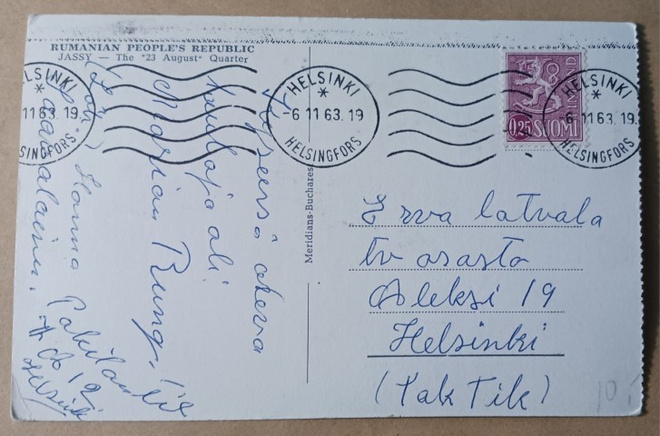 RUMANIAN PEOPLE'S REPUBLIC
JASSY — The "23 August" Quarter
Meridians-Bucharest
HELSINKI
-6 11 63. 19
HELSINGFORS
HELSINKI
-6 11 63. 19
HELSINGFORS
HELSINKI
-6 11 63. 19
HELSINGFORS
FINLAND
0,25 SUOMI
oleva
laulaja oli
Marion Rung.
Hanna
Aaltalainen.
Helsinki
Erva Latvala
tv osasto
Aleksi 19
Helsinki
(Tak Tik)
10